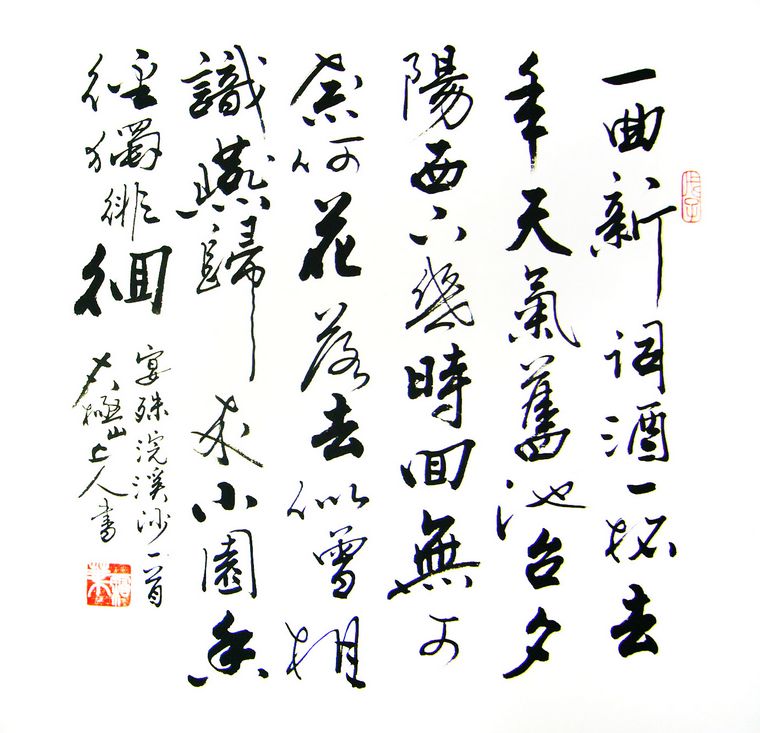 一曲新词酒一杯去
年天氣舊池台夕
陽西下幾時回無可
奈何花落去似曾相
識燕歸來小園香
徑獨徘徊
晏殊浣溪沙一首
太極山上人書